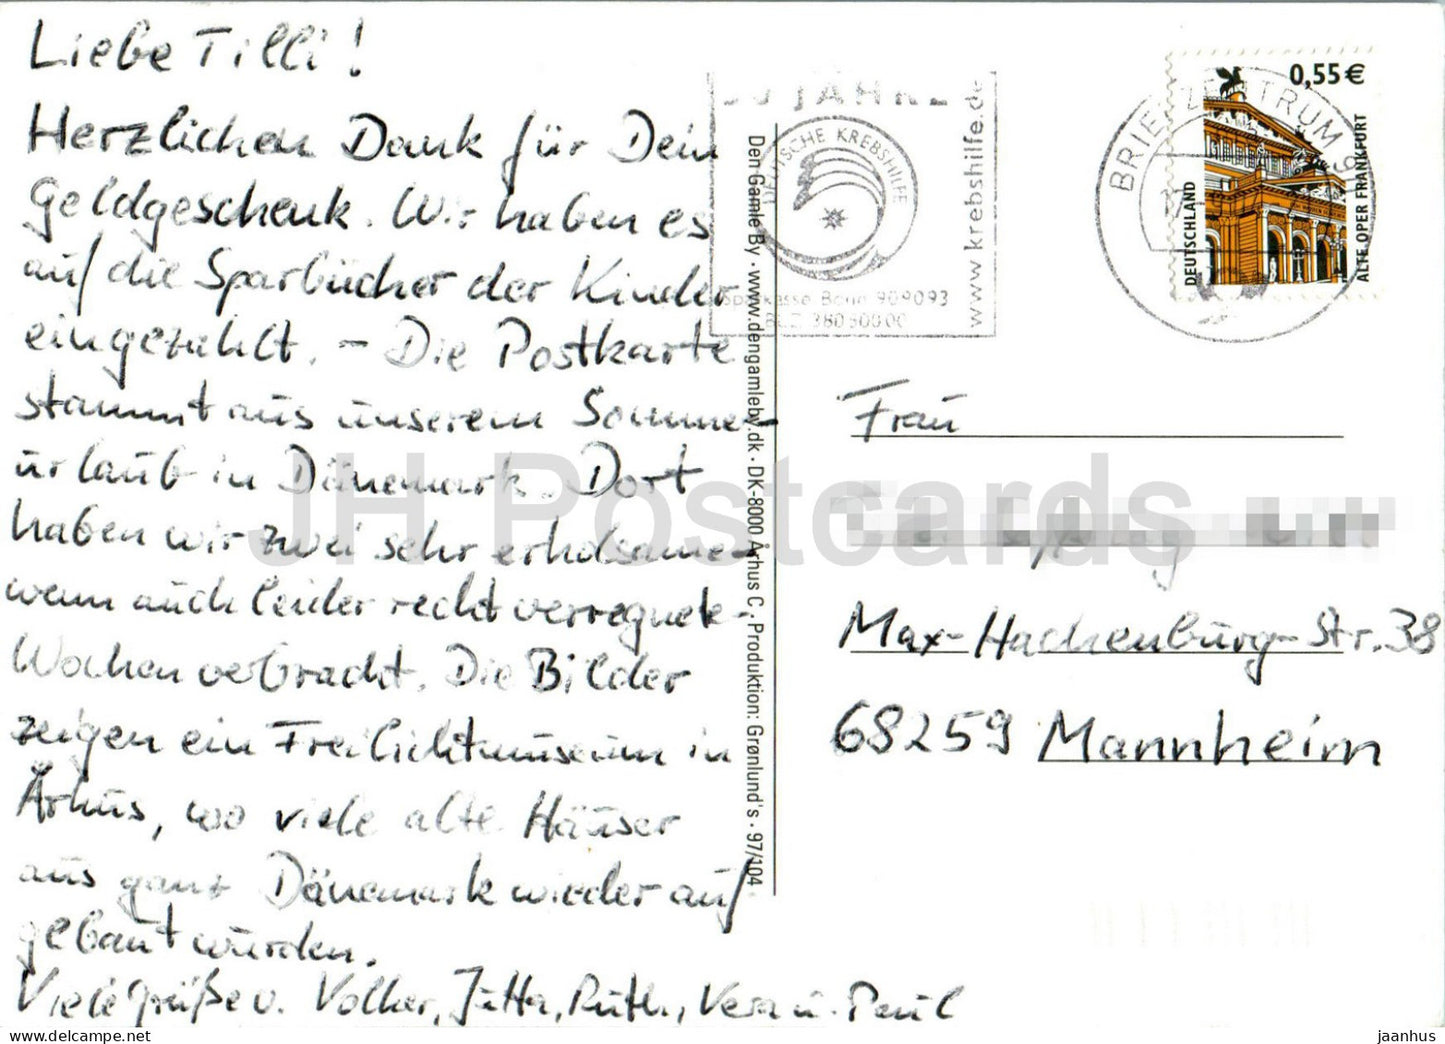 Liebe Tilli!
Herzlichen Dank für Dein
Geldgeschenk. Wir haben es
auf die Sparbücher der Kinder
eingezahlt. – Die Postkarte
stammt aus unserem Sommer-
urlaub in Dänemark. Dort
haben wir zwei sehr erholsame -
wenn auch leider recht verregnete -
Wochen verbracht. Die Bilder
zeigen ein Freilichtmuseum in
Århus, wo viele alte Häuser
aus ganz Dänemark wieder auf
gebaut wurden.
Viele Grüße v. Volker, Jutta, Ruth, Vera u. Paul
Den Gamle By · www.dengamleby.dk · DK-8000 Århus C. Produktion: Grønlund's · 97/104
JAHRE
DEUTSCHE KREBSHILFE
www.krebshilfe.de
Sparkasse Bonn 909093
BLZ 38050000
BRIEFZENTRUM
0,55€
DEUTSCHLAND
ALTE OPER FRANKFURT
Frau
Max-Hachenburg-Str. 38
68259 Mannheim
JH Postcards
jaanhus